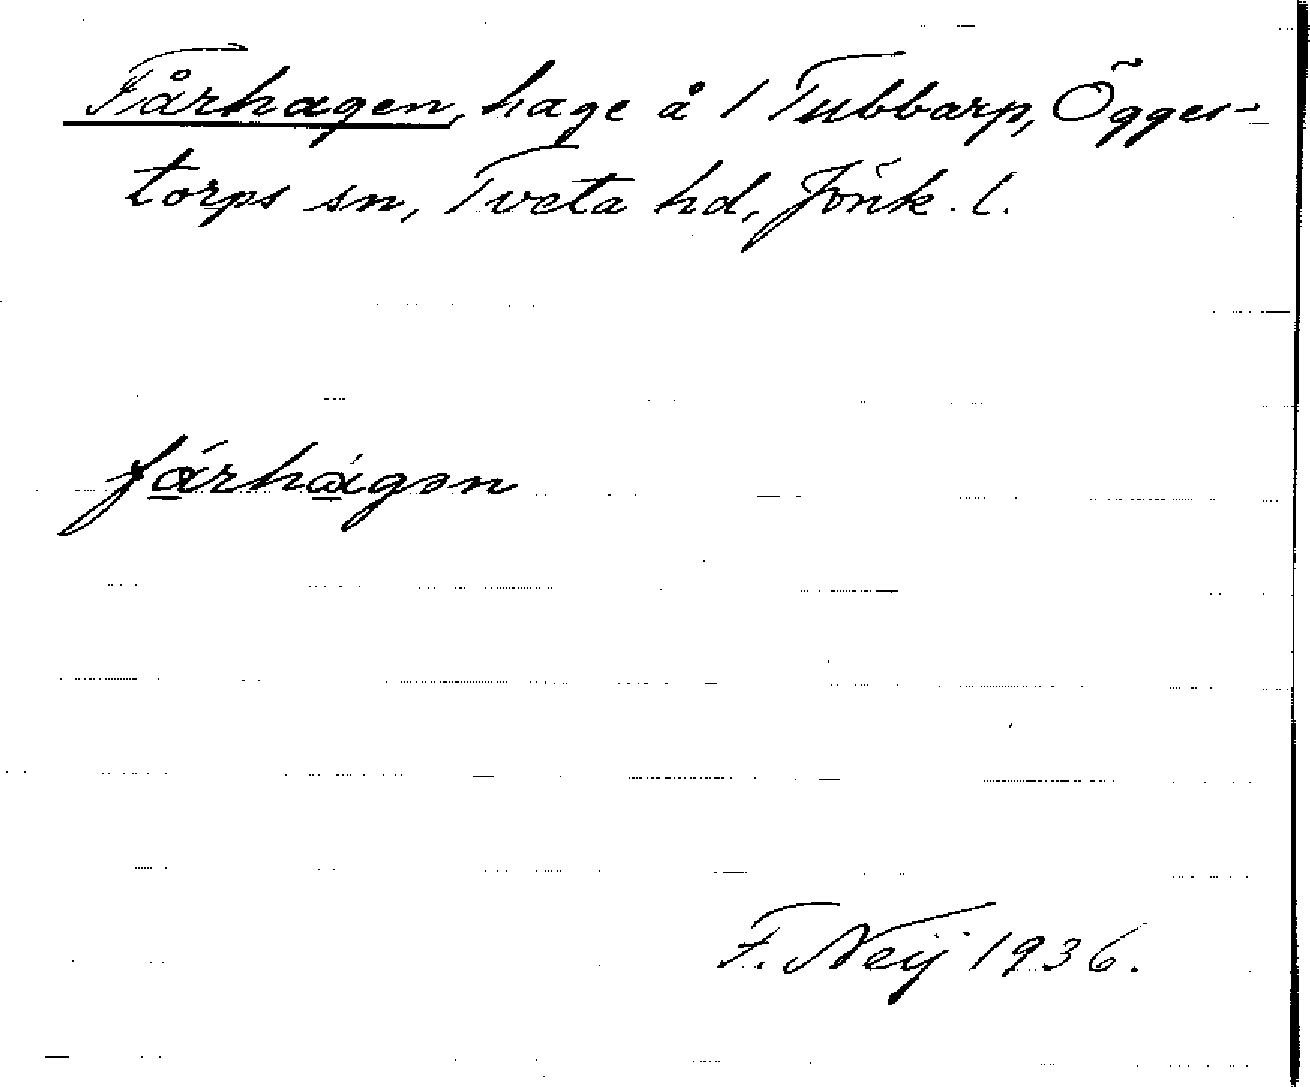 Fårhagen, hage å 1 Tubbarp, Ögges-
torps sn, Tveta hd, Jönk. l.
fárhágən
F. Neij 1936.